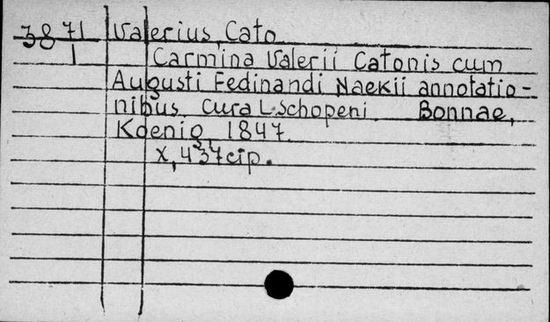 3871 Valerius, Cato
1 Carmina Valerii Catonis cum
Augusti Fedinandi Naekii annotatio-
nibus cura L. Schopeni. Bonnae,
Koenig, 1847.
X, 437 cip.